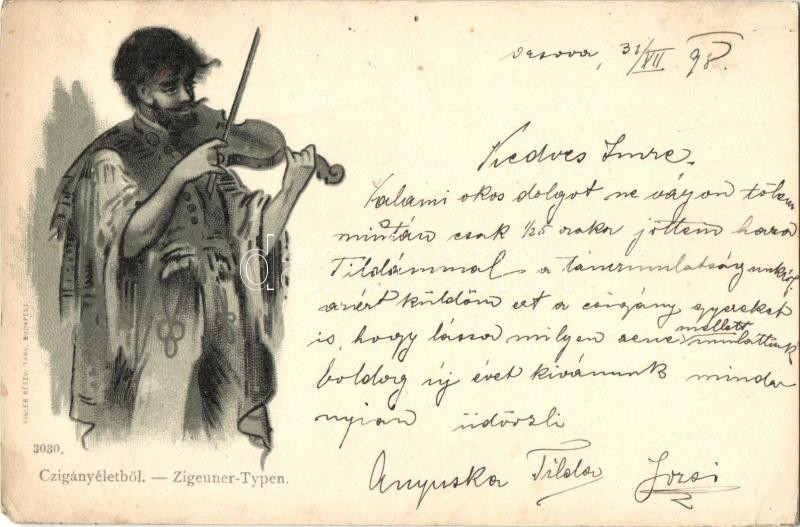 31/XII 98.
Kedves Imre.
Valami okos dolgot ne várjon tőlem
mintán csak 1/25 óraka jöttem haza
Tildámmal a táncmulatságunkról,
azért küldöm ezt a czigány gyereket
is, hogy lássa milyen zene mellett mulattunk
boldog új évet kivánunk minda
nyian üdvözli
Anyuska Tilda Jozsi
RIGLER RÉSZV. TÁRS. BUDAPEST.
3030.
Czigányéletből. — Zigeuner-Typen.